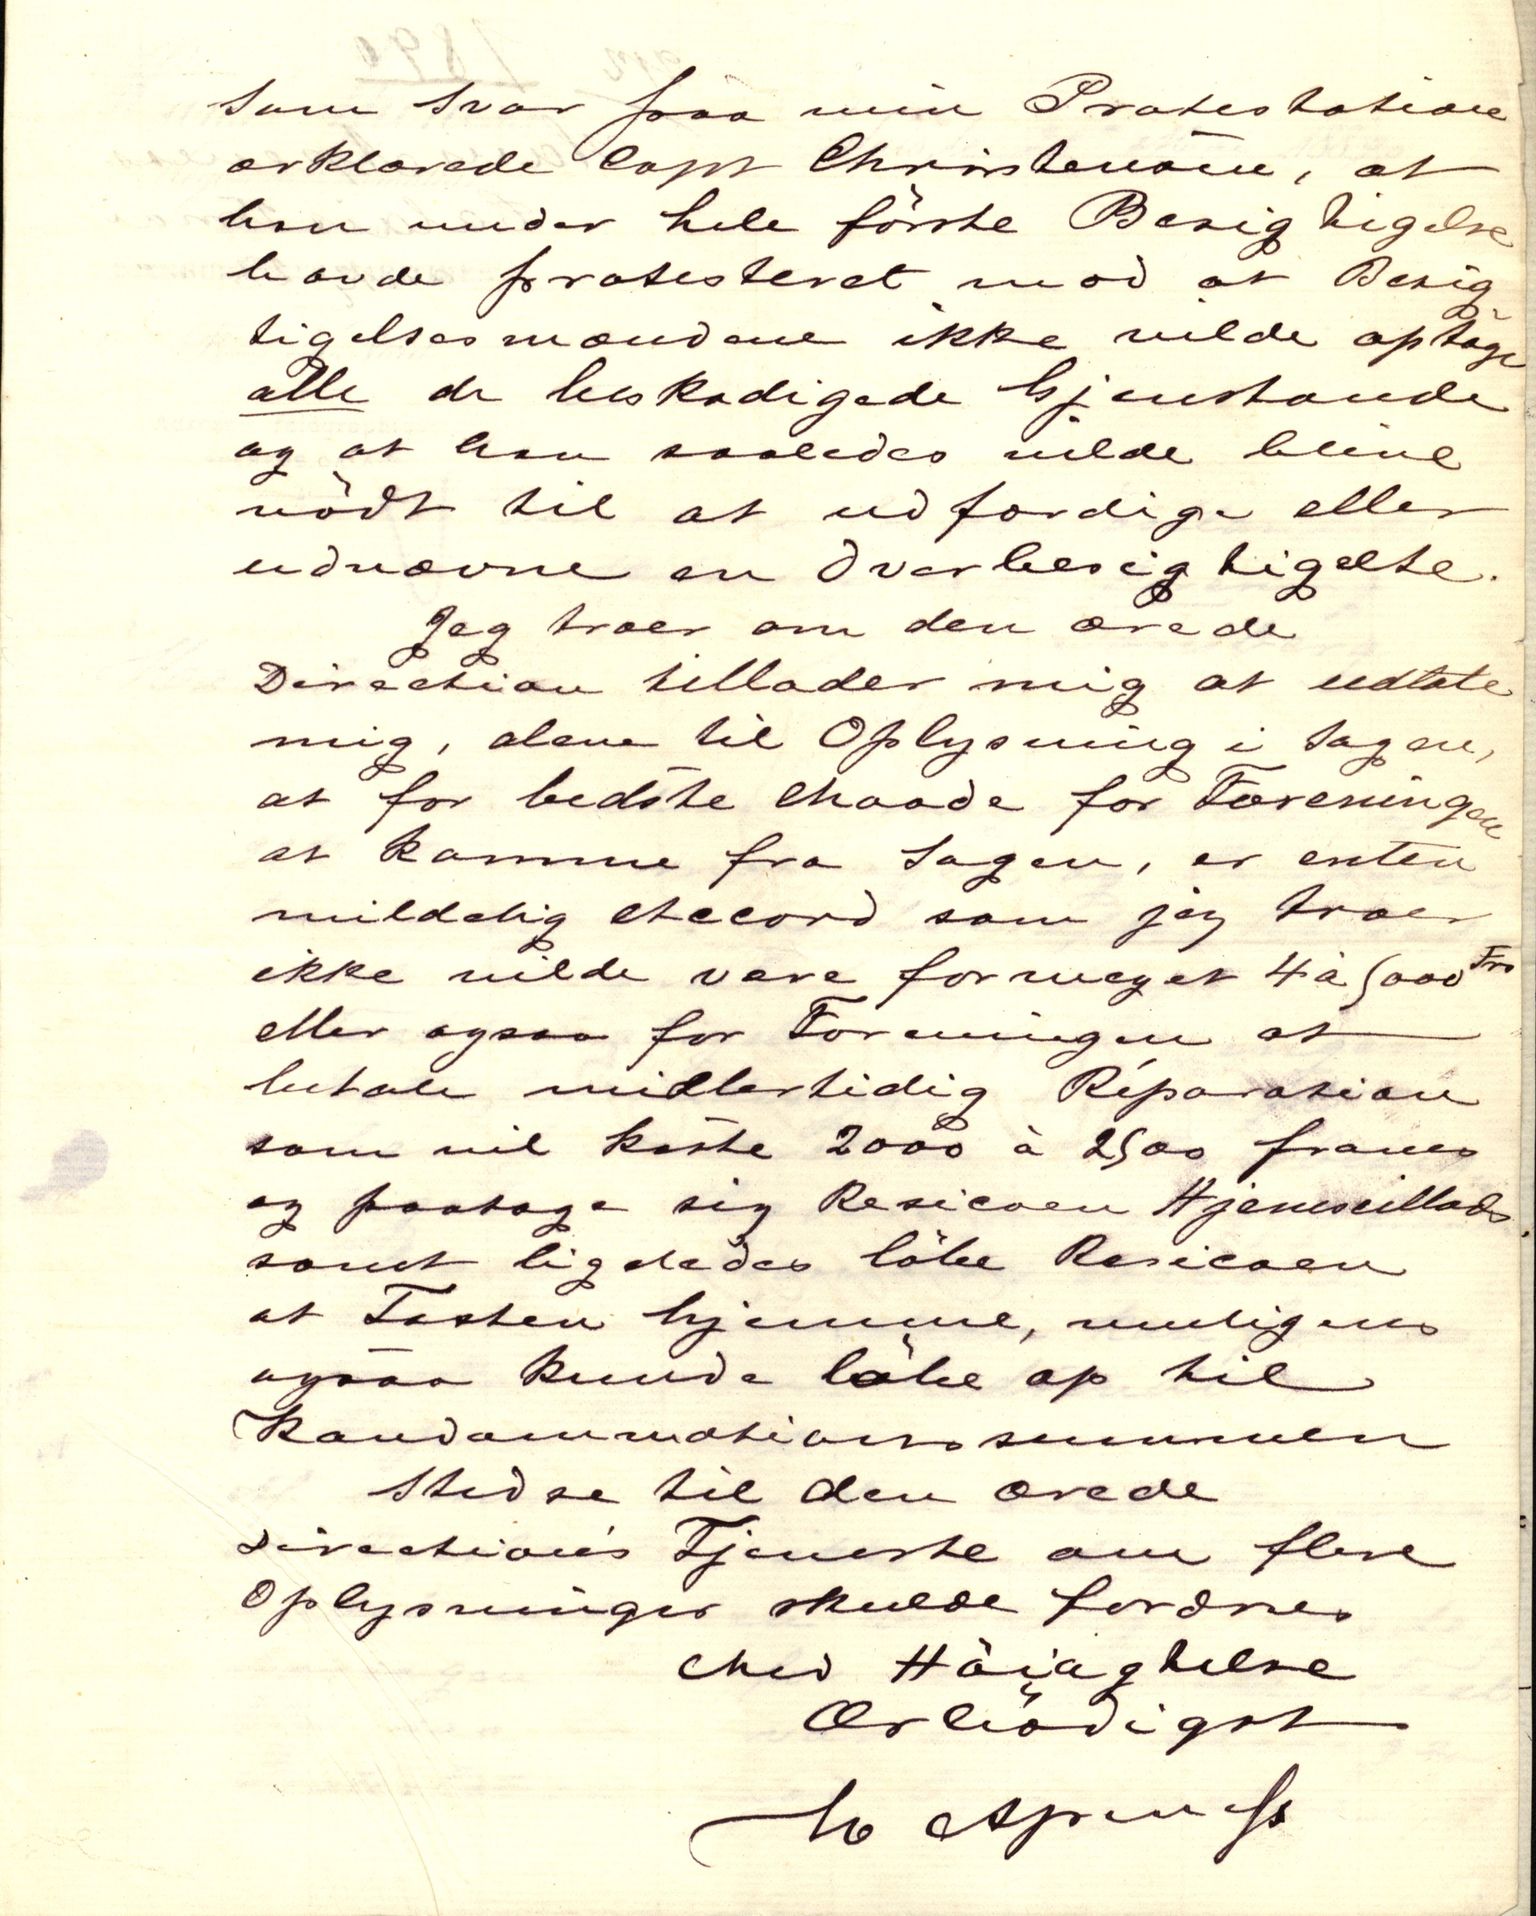 Som Svar paa min Protestation
erklærede Capt Christensen, at
han under hele förste Besigtigelse
havde protesteret mod at Besig
tigelsesmændene ikke vilde optage
alle de beskadigede Gjenstande
og at han saaledes vilde blive
nödt til at udfærdige eller
udnævne en Overbesigtigelse.
Jeg troer om den ærede
Direction tillader mig at udtale
mig, alene til Oplysning i Sagen,
at for bedste Maade for Foreningen
at komme fra Sagen, er enten
mindelig Accord som jeg troer
ikke vilde være formeget 4 à 5000 Frs
eller ogsaa for Foreningen at
betale midlertidig Réparation
som vil koste 2000 à 2500 francs
og paatage sig Resicoen
samt ligeledes löbe Resicoen
at hjemme, muligens
ogsaa kunde löbe op til
Kondammationssummen
Stedse til den ærede
Direction's Tjeneste om flere
Oplysninger skulde fordres
Med Höiagtelse
Ærbödigst